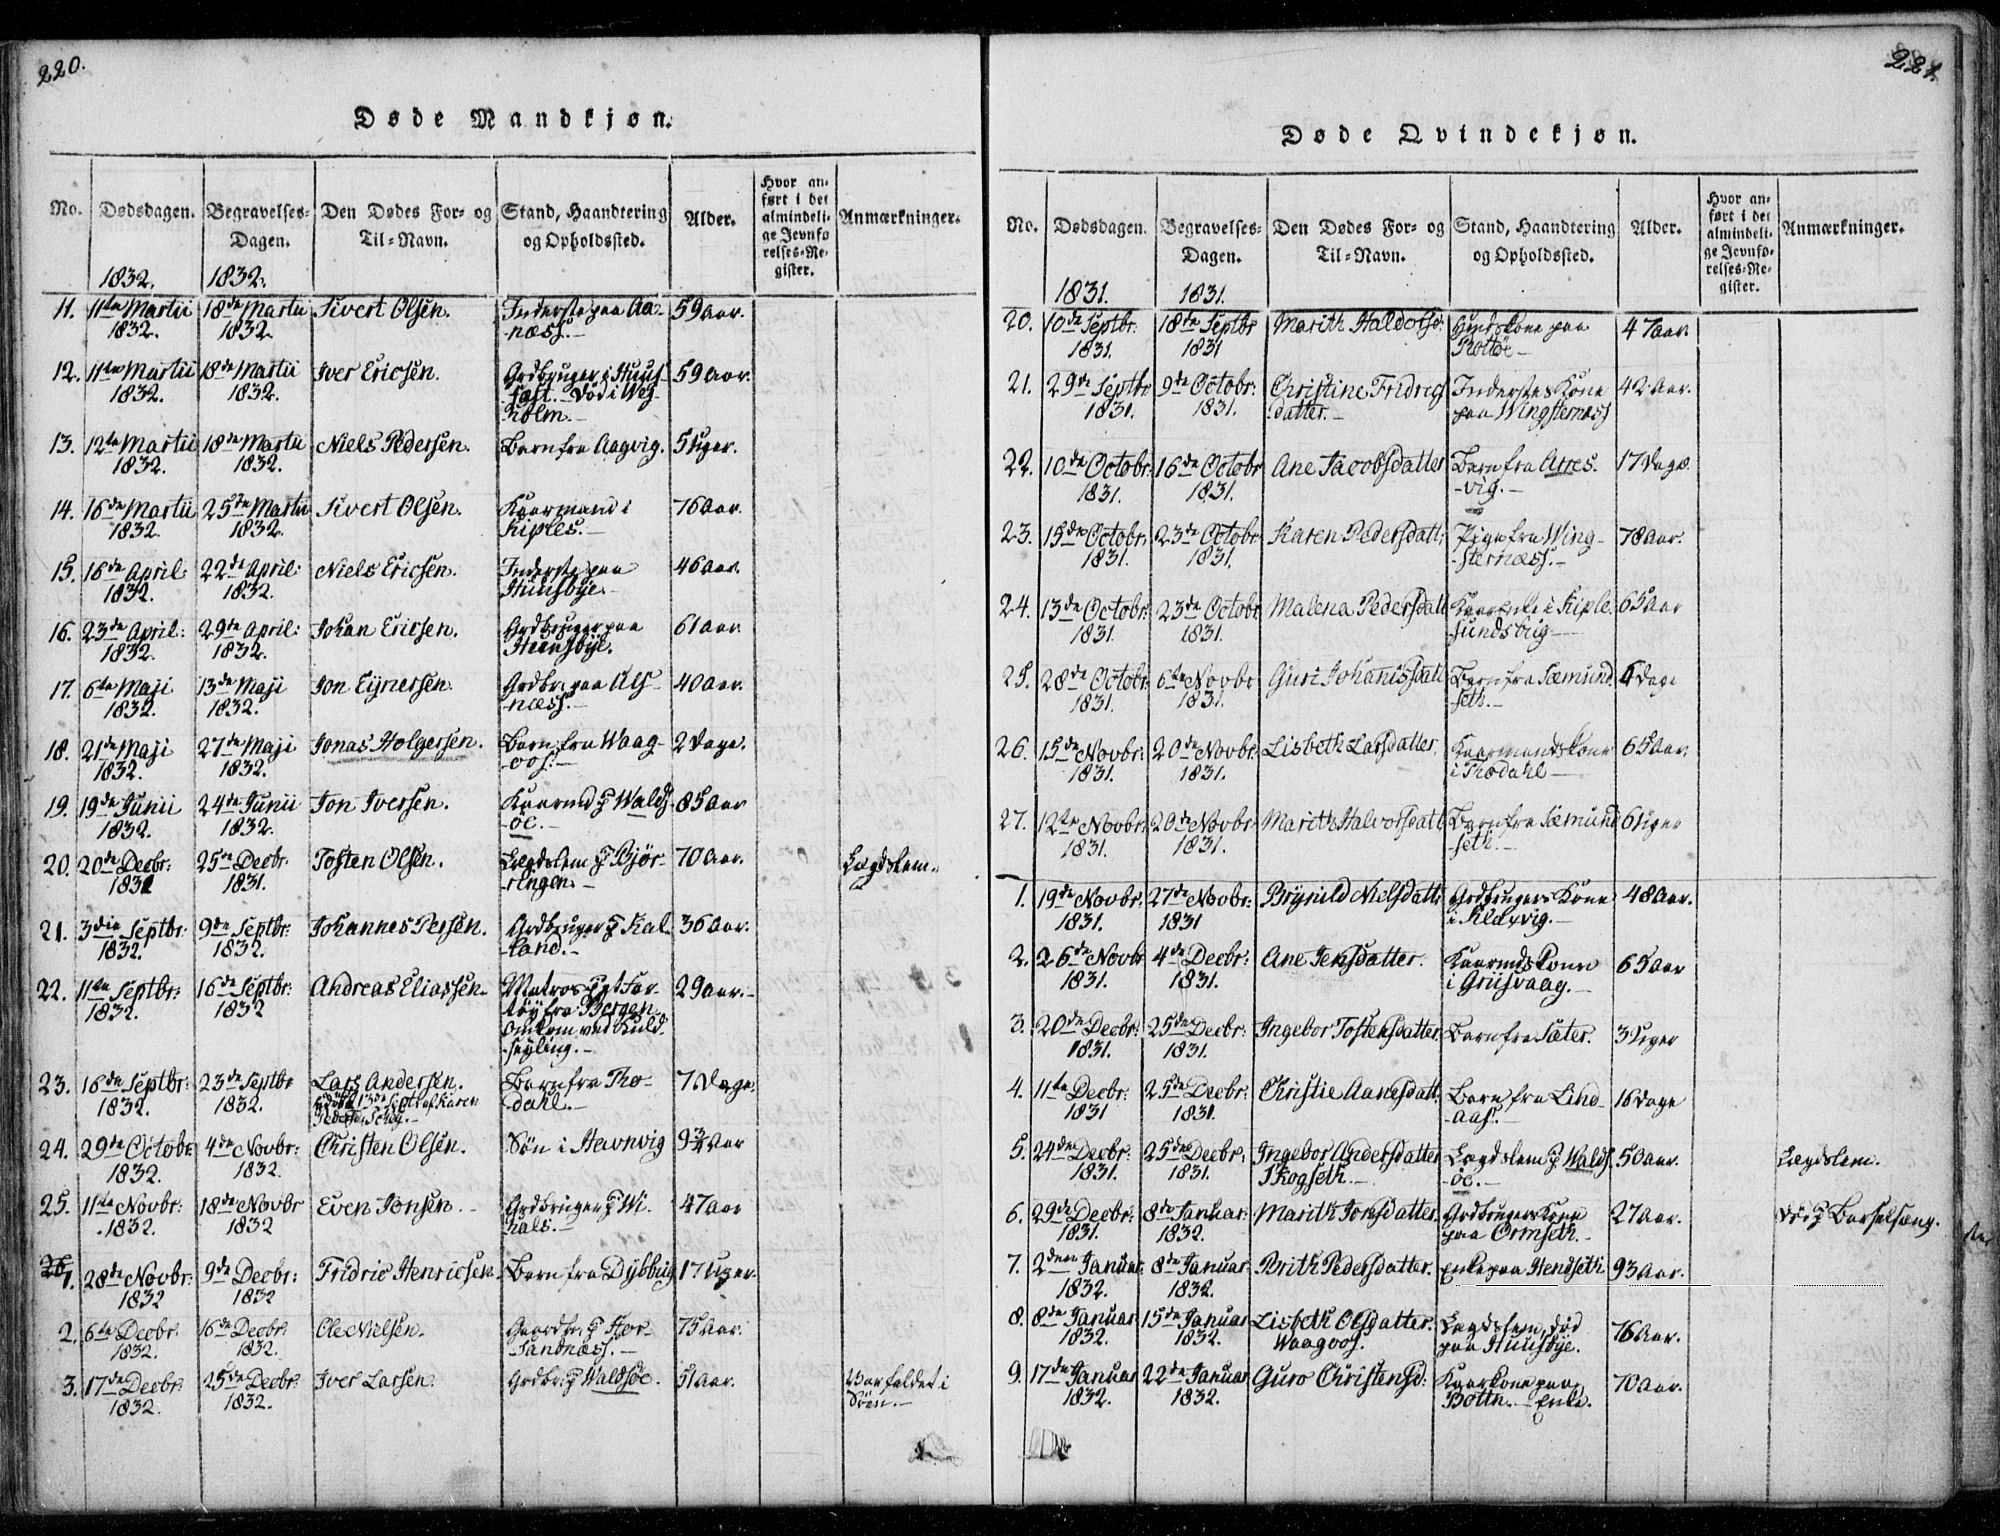 220.
Døde Mandkjøn.
No. Dødsdagen. Begravelses-Dagen. Den Dødes For- og Til-Navn. Stand, Haandtering og Opholdssted. Alder. Hvor anført i det almindelige Jevnførelses-Register. Anmærkninger.
1832. 1832.
11. 11te Martii 18de Martii Sivert Olsen. Inderste paa Aa- 59 Aar.
1832. 1832. næss.
12. 11te Martii 18de Martii Iver Ericsen. Grdbruger i Huus- 59 Aar.
1832. 1832. fast. Død i Weg-
holm.
13. 12te Martii 18de Martii Niels Pedersen. Barn fra Aagvig. 5 Uger.
1832. 1832.
14. 16de Martii 25de Martii Sivert Olsen. Kaarmand i 76 Aar.
1832. 1832. Kiples.
15. 16de April: 22de April: Niels Ericsen. Inderste paa 46 Aar.
1832. 1832. Huusbye.
16. 23de April: 29de April: Johan Ericsen. Grdbruger paa 61 Aar.
1832. 1832. Huusbye.
17. 6te Maji 13de Maji Jon Ejnersen. Grdbr: paa Als- 40 Aar.
1832. 1832. næss.
18. 21de Maji 27de Maji Jonas Holgersen. Barn fra Waag- 2 Dage.
1832. 1832. oos.
19. 19de Junii 24de Junii Jon Iversen. Kaarmd p Walds- 85 Aar
1832. 1832. öe.
20. 20de Decbr: 25de Decbr. Tosten Olsen. Lægdslem p Bjør- 70 Aar. Lægdslem.
1831 1831. ringen.
21. 3die Septbr: 9de Septbr: Johannes Persen. Grdbruger p Kal- 36 Aar.
1832. 1832. land.
22. 11te Septbr: 16de Septbr: Andreas Eliassen. Matros p et Far- 29 Aar.
1832. 1832 töy fra Bergen
omkom ved Kuld-
seyling.
23. 16de Septbr: 23de Septbr Lars Andersen. Barn fra Tho- 7 Dage.
1832. 1832. dahl.
24. 29de Octobr: 4de Novbr: Christen Olsen. Søn i Havnvig 9 3/4 Aar
1832. 1832.
25. 11te Novbr: 18de Novbr Even Jonsen. Grdbruger p Wi- 47 Aar
1832. 1832 hals.
26.
1. 28de Novbr: 9de Decbr: Fridric Henricsen Barn fra Dybbvig 17 Uger.
1832 1832
2. 6te Decbr. 16de Decbr. Ole Nielsen. Gaardbr: p Hor- 75 Aar.
1832. 1832. sandnæss.
3. 17de Decbr: 25de Decbr. Iver Larsen. Grdbr: p Waldsöe. 51 Aar. Var faldet i
1832. 1832. Söen.
221.
Døde Qvindekjøn.
No. Dødsdagen. Begravelses-Dagen. Den Dødes For- og Til-Navn. Stand, Haandtering og Opholdssted. Alder. Hvor anført i det almindelige Jevnførelses-Register. Anmærkninger.
1831. 1831.
20. 10de Septbr: 18de Septbr Marith Haldorsd: Huuskone paa 47 Aar.
1831. 1831 Roltöe
21. 29de Septbr 9de Octobr: Christine Fridrics Inderstes Kone 42 Aar.
1831. 1831. datter. paa Wingsternæss
22. 10de Octobr: 16de Octobr Ane Jacobsdatter Barn fra Arres- 17 Dage.
1831. 1831. vig.
23. 15de Octobr: 23de Octobr Karen Pedersdatt: Pige fra Wing- 78 Aar.
1831. 1831. sternæss.
24. 13de Octobr: 23de Octobr Malena Pedersdatt Kaarenke i Kiple- 65 Aar
1831. 1831. sundsbug
25. 28de Octobr: 6te Novbr Guri Johanisdatt Barn fra Sæmund- 6 Dage
1831. 1831. seth.
26. 15de Novbr: 20de Novbr. Lisbeth Larsdatter. Kaarmandskone 65 Aar.
1831. 1831. i Thodahl
27. 12te Novbr: 20de Novbr. Marith Halvorsdatt Barn fra Sæmund- 6 Uger
1831. 1831. seth.
1. 19de Novbr. 27de Novbr: Brynild Nielsdatt: Grdbrugers Kone 48 Aar.
1831. 1831 i Klakvig.
2. 26de Novbr 4de Decbr: Ane Jensdatter. Kaarmds kone 65 Aar
1831. 1831. i Griisvaag.
3. 20de Decbr: 25de Decbr: Ingebor Tostensdatter. Barn fra Sæter. 3 Uger
1831. 1831.
4. 11te Decbr: 25de Decbr: Christie Aanesdatt: Barn fra Lind- 16 Dage
1831 1831. aas.
5. 24de Decbr: 25de Decbr: Ingebor Andersdatter Lægdslem p Walds- 50 Aar. Lægdslem.
1831. 1831. Skogseth. öe.
6. 29de Decbr: 8de Januar: Marith Jonsdatter. Grdbrugers Kone 27 Aar. Død p Barselseng.
1831. 1832. paa Ormseth.
7. 2den Januar: 8de Januar: Brith Pedersdatter. Enke paa Hendseth. 93 Aar.
1832. 1832.
8. 8de Januar 15de Januar Lisbeth Olsdatter. Lægdslem, død 76 Aar.
1832. 1832. Waagoos. paa Huusbye.
9. 17de Januar 22de Januar Guro Christensd: Kaarkone paa 70 Aar.
1832. 1832. Bottn. Enke.